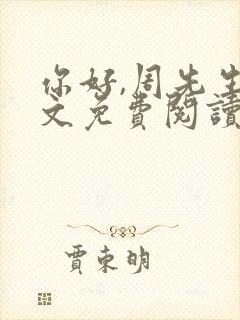 你好,周先生
文免費閱讀
賈東明